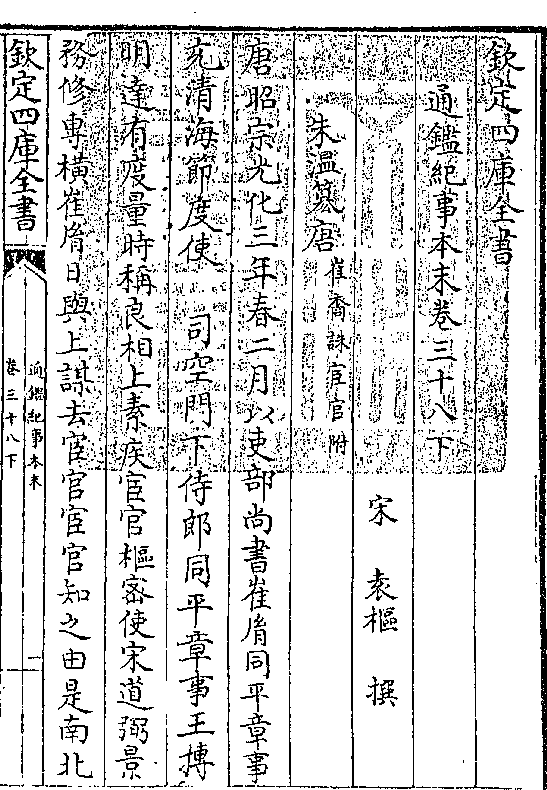 欽定四庫全書
通鑑紀事本末卷三十八下
宋 袁樞 撰
朱溫簒唐崔胤誅宦官附
唐昭宗光化三年春二月以吏部尚書崔胤同平章事
充清海節度使 司空門下侍郎同平章事王摶
明達有度量時稱良相上素疾宦官樞宻使宋道弼景
務修專橫崔胤日與上謀去宦官宦官知之由是南北
欽定四庫全書
通鑑紀事本末
卷三十八下
一